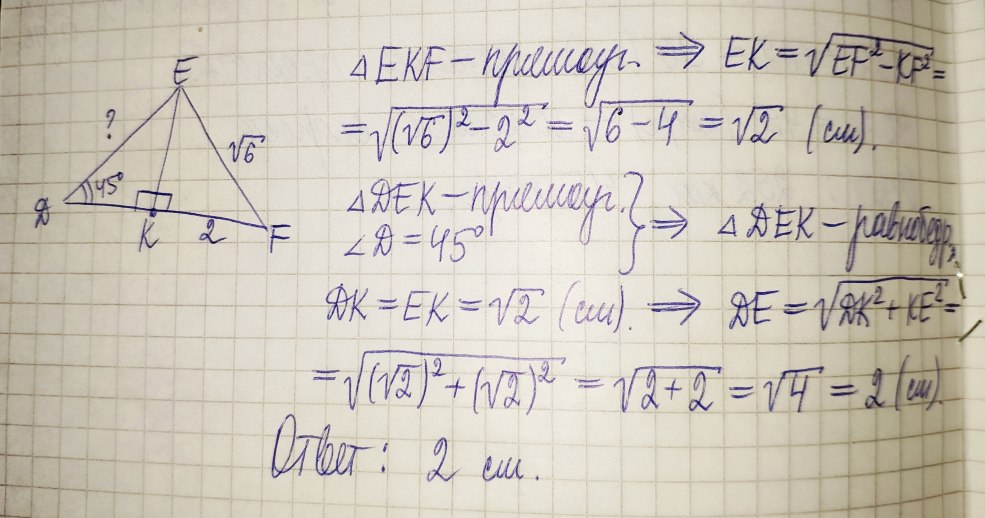 E
?
√6
45°
D
K
2
F
△EKF – прямоуг. ⇒ EK = √(EF² – KF²) =
= √((√6)² – 2²) = √(6 – 4) = √2 (см).
△DEK – прямоуг.
∠D = 45°
} ⇒ △DEK – равнобедр.,
DK = EK = √2 (см). ⇒ DE = √(DK² + KE²) =
= √((√2)² + (√2)²) = √(2 + 2) = √4 = 2 (см).
Ответ: 2 см.